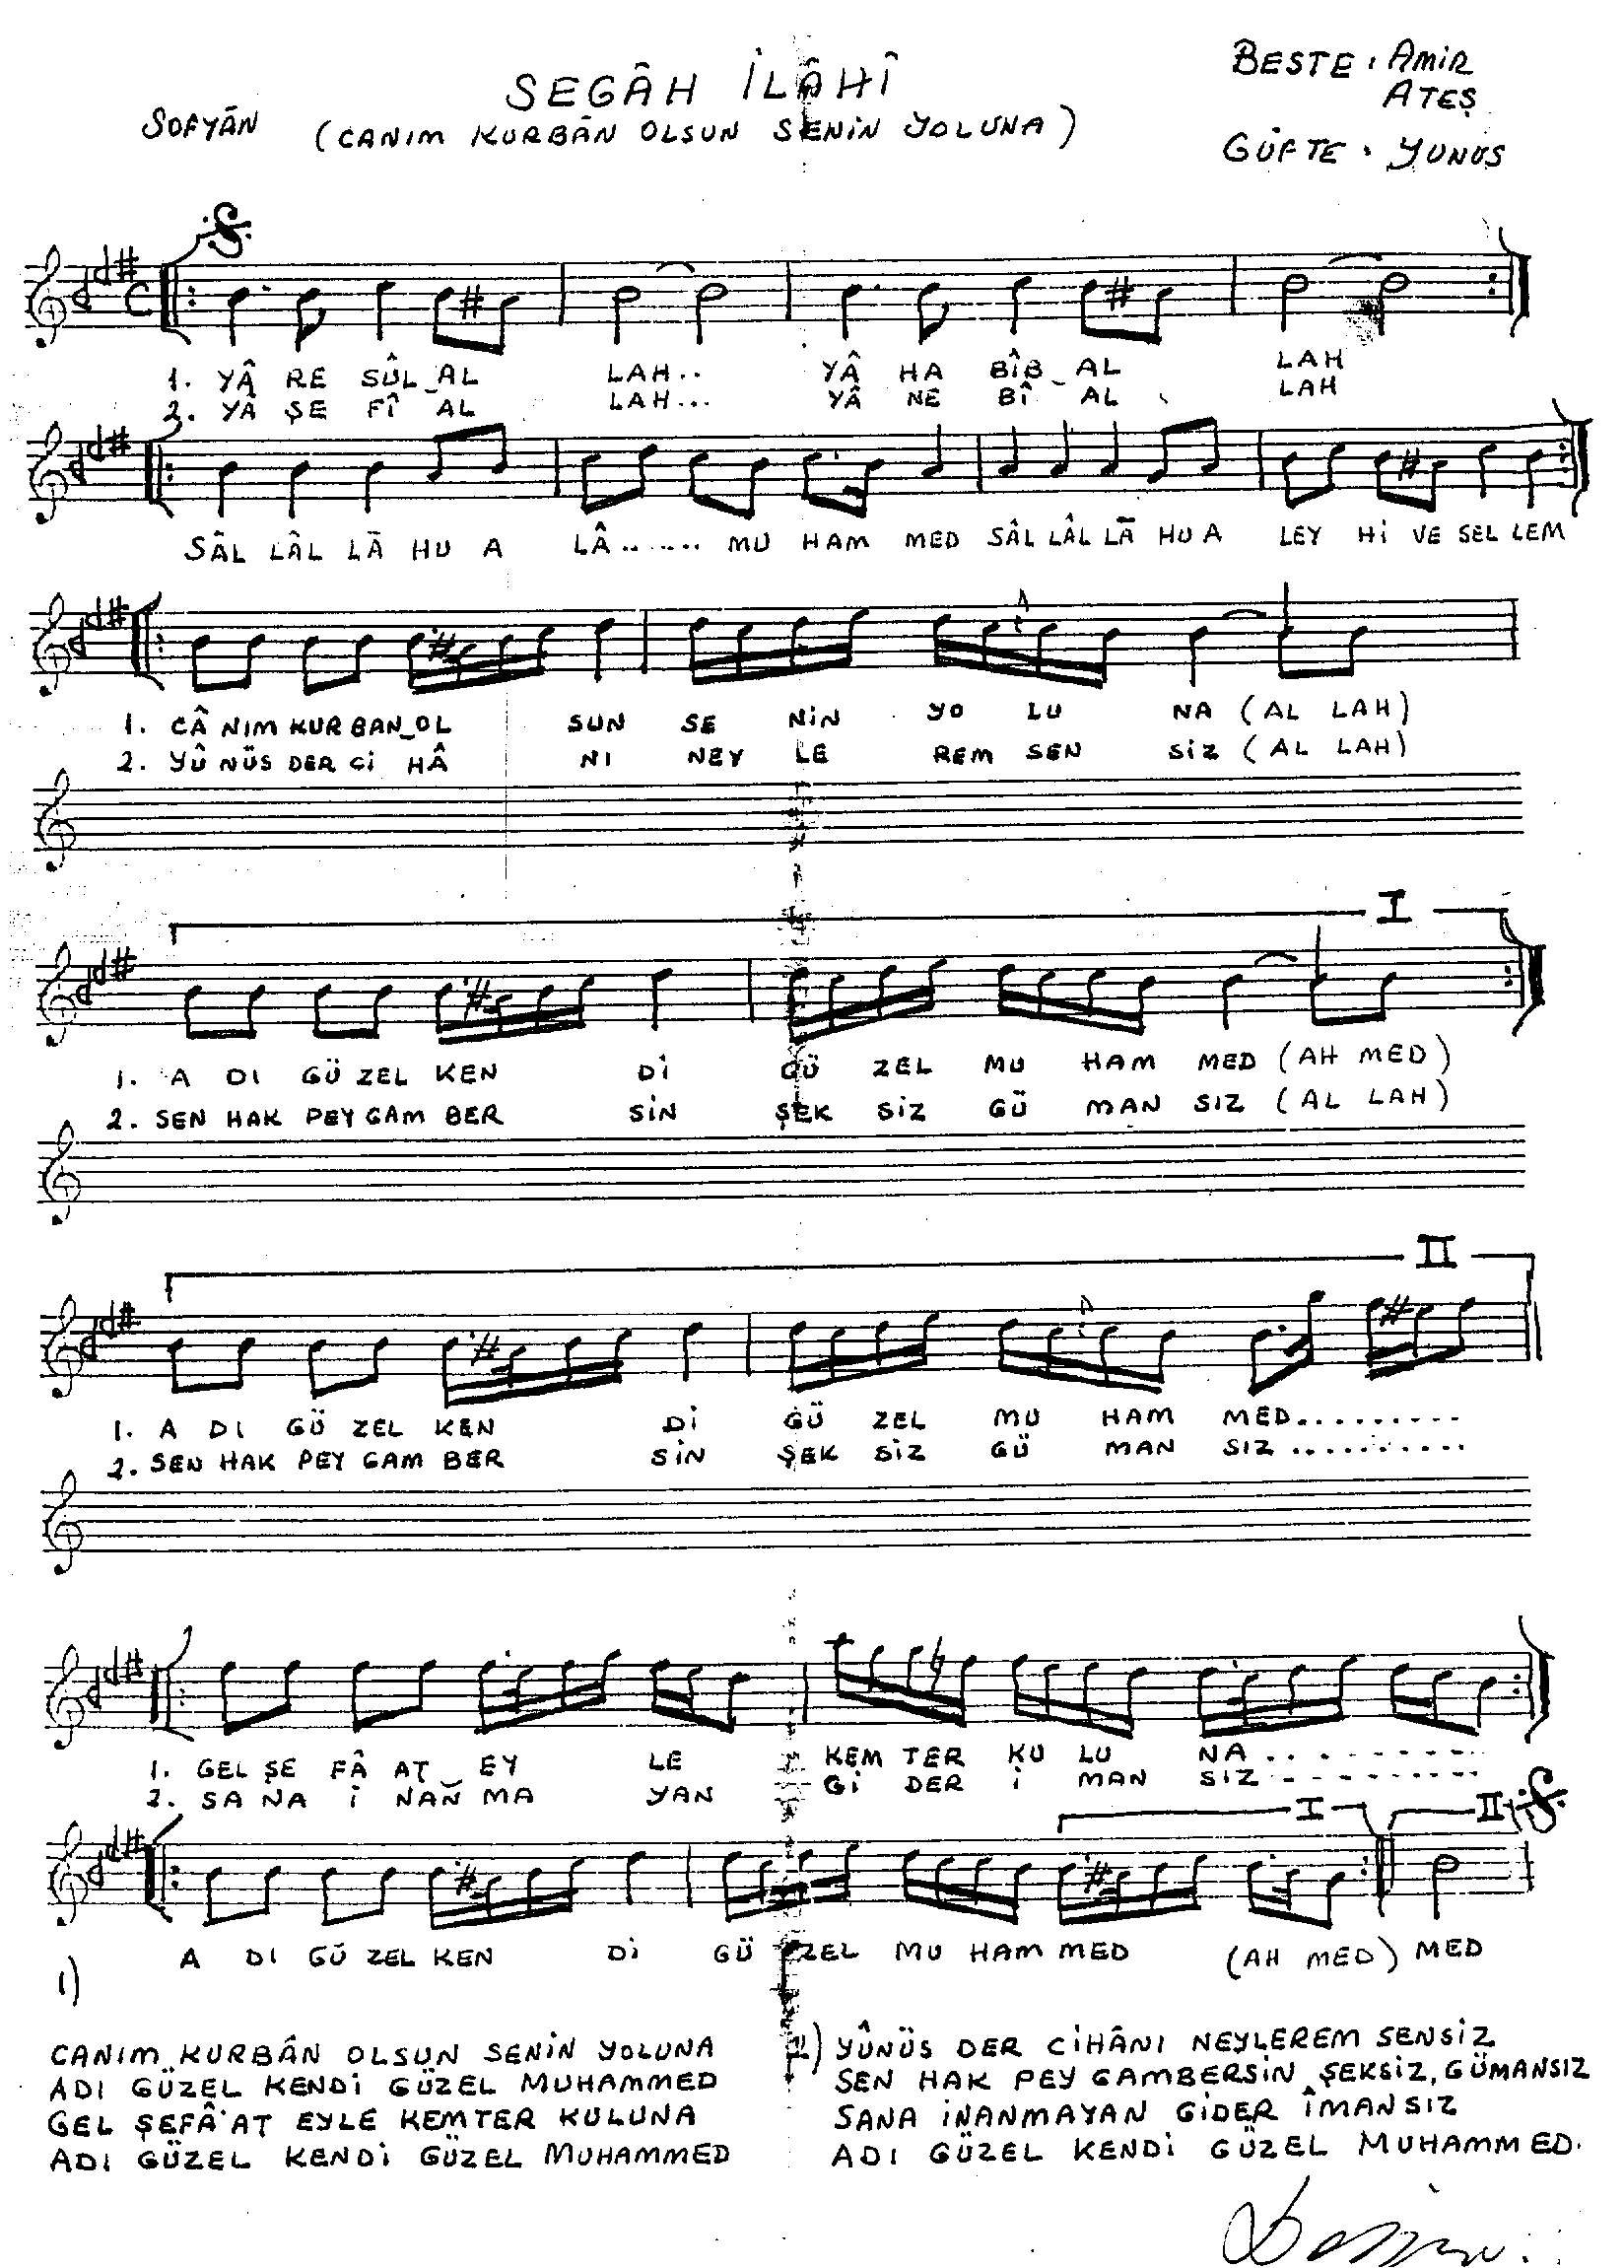 SEGÂH İLÂHÎ
BESTE : AMİR
ATEŞ
SOFYÂN (CANIM KURBÂN OLSUN SENİN YOLUNA)
GÜFTE : YUNUS
1. YÂ RE SÛL_AL LAH.. YÂ HA BÎB_AL LAH
2. YÂ ŞE FÎ AL LAH... YÂ NE BÎ AL LAH
SÂL LÂL LÂ HU A LÂ....... MU HAM MED SÂL LÂL LÂ HU A LEY Hİ VE SEL LEM
1. CÂ NIM KUR BAN_OL SUN SE NİN YO LU NA (AL LAH)
2. YÛ NÜS DER Cİ HÂ NI NEY LE REM SEN SİZ (AL LAH)
I
1. A DI GÜ ZEL KEN Dİ GÜ ZEL MU HAM MED (AH MED)
2. SEN HAK PEY GAM BER SİN ŞEK SİZ GÜ MAN SIZ (AL LAH)
II
1. A DI GÜ ZEL KEN Dİ GÜ ZEL MU HAM MED..........
2. SEN HAK PEY GAM BER SİN ŞEK SİZ GÜ MAN SIZ ..........
1. GEL ŞE FÂ AT_EY LE KEM TER KU LU NA..........
2. SA NA İ NAN MA YAN Gİ DER İ MAN SIZ..........
I II
A DI GÜ ZEL KEN Dİ GÜ ZEL MU HAM MED (AH MED) MED
1)
CANIM KURBÂN OLSUN SENİN YOLUNA
ADI GÜZEL KENDİ GÜZEL MUHAMMED
GEL ŞEFÂ'AT EYLE KEMTER KULUNA
ADI GÜZEL KENDİ GÜZEL MUHAMMED
2) YÛNÜS DER CİHÂNI NEYLEREM SENSİZ
SEN HAK PEYGAMBERSİN ŞEKSİZ, GÜMANSIZ
SANA İNANMAYAN GİDER ÎMANSIZ
ADI GÜZEL KENDİ GÜZEL MUHAMMED.